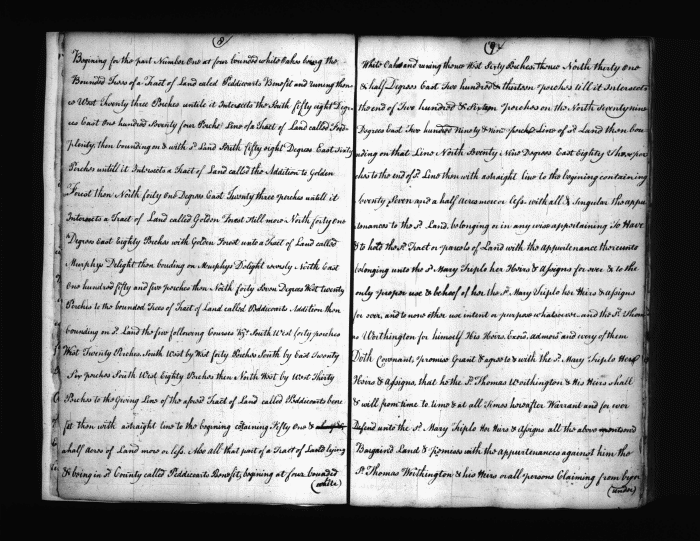 8
Begining for the part Number One at four bounded white Oakes being the
Bounded Trees of a Tract of Land called Peddicoarts Benefit and runing then
ce West Twenty three Perches untile it Intersects the South fifty eight Degre
es East One hundred Seventy four Perche Line of a Tract of Land called
plenty, then bounding on & with sd Land South fifty eight Degrees East Sixty
Perches untill it Intersects a Tract of Land called the Addition to Golden
Forest then North forty One Degrees East Twenty three perches untill it
Intersects a Tract of Land called Golden Forest still more North forty One
Degrees East Eighty Perches with Golden Forest unto a Tract of Land called
Murphys Delight then bending on Murphys Delight reversly North East
One hundred fifty and five porches then North forty Seven Degrees West twenty
Perches to the bounded Trees of Tract of Land called Peddicoarts Addition then
bounding on sd Land the few following Courses Vizt South West forty porches
West Twenty Perches South West by West forty Perches South by East Twenty
Six porches South West Eighty Perches then North West by West Thirty
Perches to the Giving Line of the aforesd Tract of Land called Peddicoarts bene
fit then with a straight line to the begining containing Fifty One &
half Acres of Land more or less. Also all that part of a Tract of Land lying
& being in sd County called Peddicoarts Benefit, begining at four bounded
(white)
9
White Oakes and runing thence West Sixty Perches thence North thirty One
& half Degrees East Two hundred & thirteen perches till it Intersects
the end of Two hundred & Sixteen perches on the North Seventy nine
Degrees East Two hundred Ninety & Nine perches Line of sd Land then bou
nding on that Line North Seventy Nine Degrees East Eighty Three per
ches to the end of sd Line then with a straight line to the begining containing
Seventy Seven and a half Acres more or less. with all & Singular the appu
rtenances to the sd Land, belonging or in any wise appertaining To Have
& to hold the sd Tract or parcels of Land with the appurtenance thereunto
belonging unto the sd Mary Triplo her Heirs & Assigns for ever & to the
only proper use & behoof of her the sd Mary Triplo her Heirs & Assigns
for ever, and to now other use intent or purpose whatsoever. and the sd Thom
as Worthington for himself His Heirs, Exors, admors and every of them
Doth Covenant, promise Grant & agree to & with the sd Mary Triplo Her
Heirs & Assigns, that he the sd Thomas Worthington & His Heirs shall
& will from time to time & at all Times hereafter Warrant and for ever
Defend unto the sd Mary Triplo Her Heirs & Assigns all the above mentioned
Bargain'd Land & premises with the appurtenances against him the
sd Thomas Worthington & his Heirs or all persons Claiming from by or
(under)